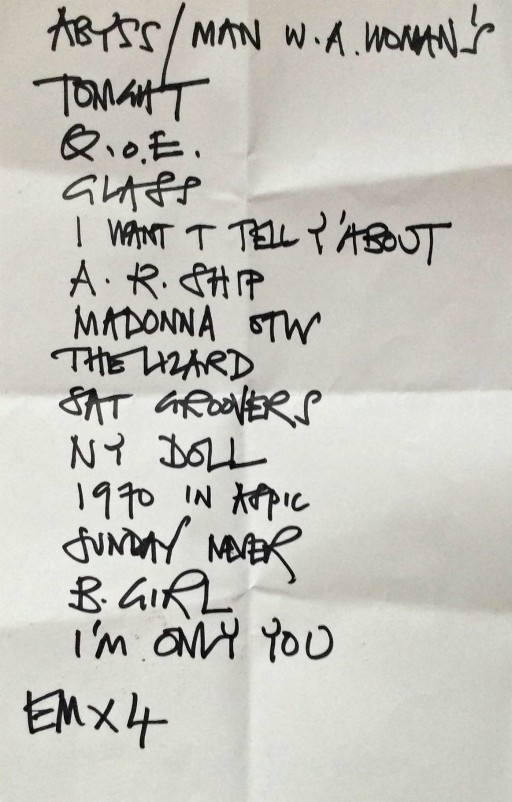 ABYSS/MAN W.A. WOMAN'S
TONGHT
Q.O.E.
GLASS
I WANT T TELL Y'ABOUT
A. R. SHIP
MADONNA OTW
THE LIZARD
SAT GROOVERS
NY DOLL
1970 IN ASPIC
SUNDAY NEVER
B. GIRL
I'M ONLY YOU
EM X 4